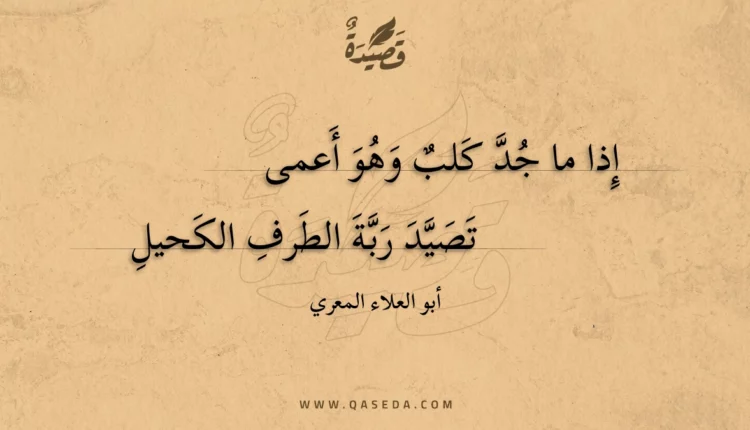 قَصِيدَةٌ
إِذا ما جُدَّ كَلبٌ وَهُوَ أَعمى
تَصَيَّدَ رَبَّةَ الطَرفِ الكَحيلِ
أبو العلاء المعري
WWW.QASEDA.COM